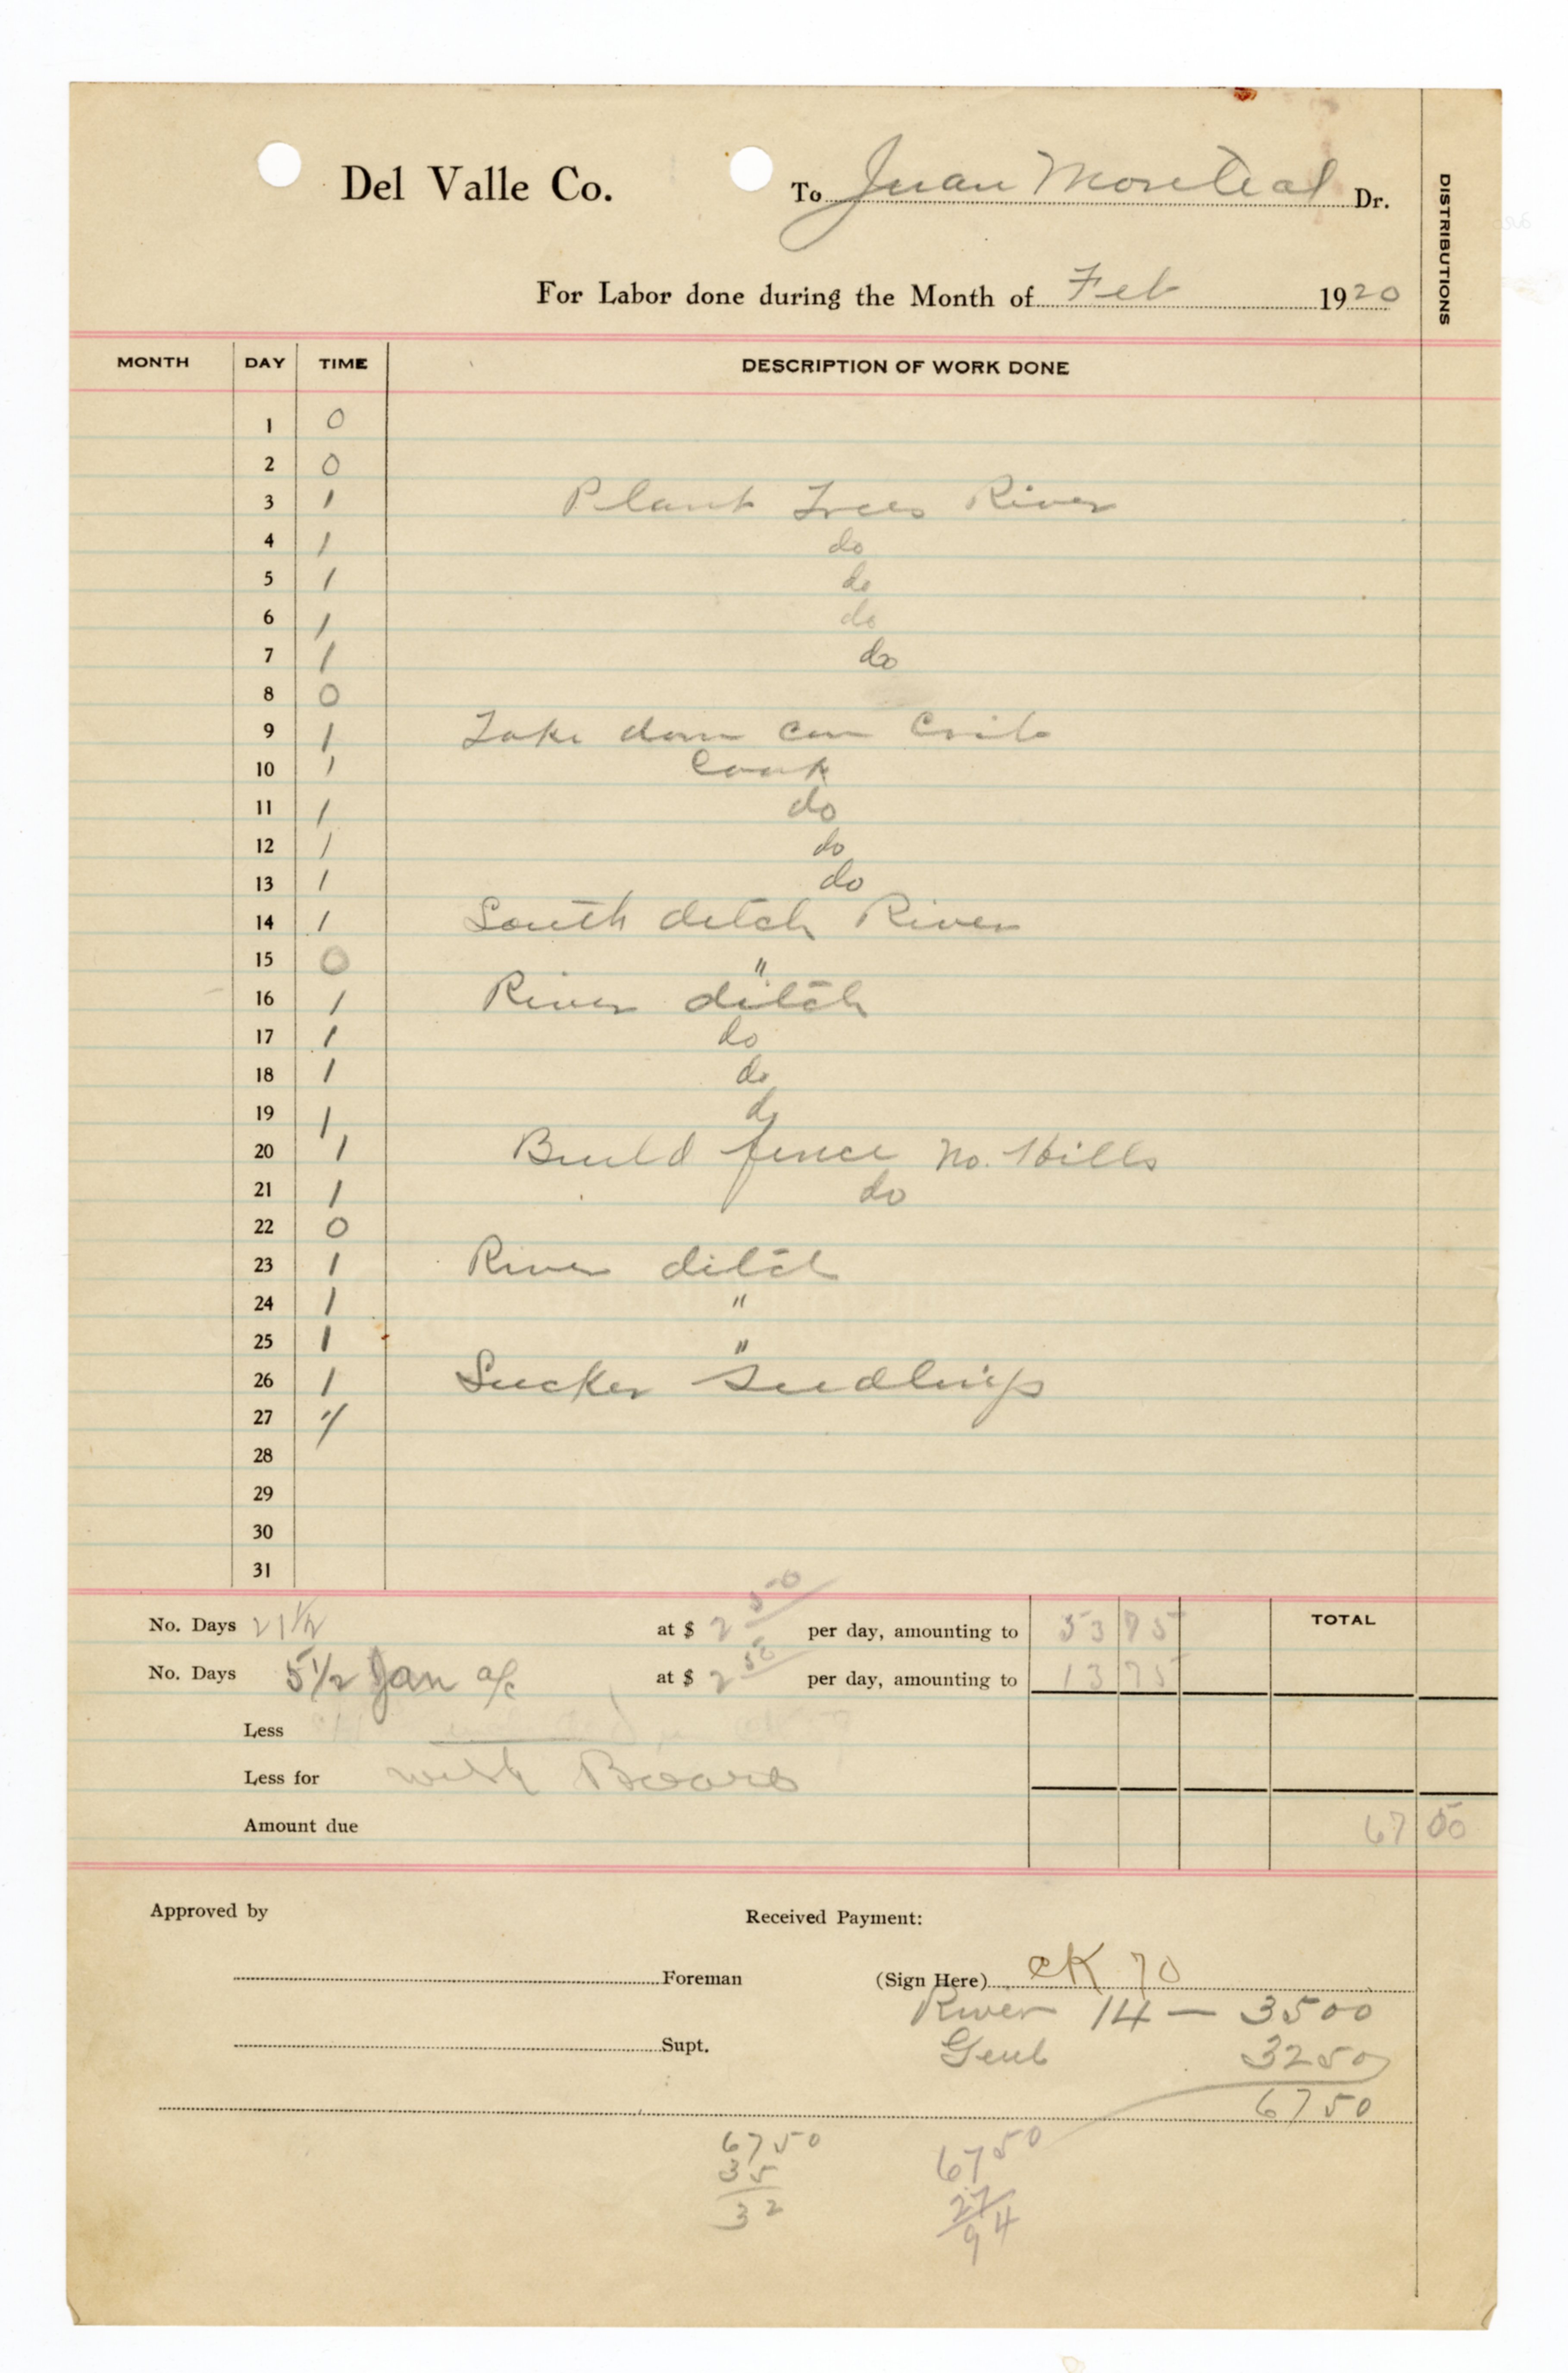 Del Valle Co. To Juan Monteal Dr.
DISTRIBUTIONS
For Labor done during the Month of Feb 1920
MONTH DAY TIME DESCRIPTION OF WORK DONE
1 0
2 0
3 1 Plant Trees River
4 1 do
5 1 do
6 1 do
7 1 do
8 0
9 1 Take down Crib
10 1 Cook
11 1 do
12 1 do
13 1 do
14 1 South ditch River
15 0 "
16 1 River ditch
17 1 do
18 1 do
19 1 do
20 1 Build fence No. Hills
21 1 do
22 0
23 1 River ditch
24 1 "
25 1 "
26 1 Sucker Seedlings
27
28
29
30
31
No. Days 21 1/2 at $ 2 50 per day, amounting to 53 75 TOTAL
No. Days 5 1/2 Jan a/c at $ 2 50 per day, amounting to 13 75
Less
Less for with Board
Amount due 67 50
Approved by Received Payment:
Foreman (Sign Here) CK 70
River 14 — 35 00
Supt. Genl 32 50
67 50
67 50 67 50
35 27
32 94